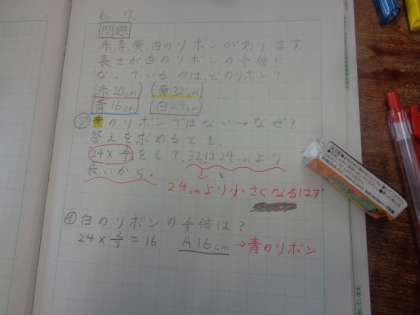 問題
赤、青、黄、白のリボンがあります。
長さが白のリボンの
なっているのは、どのリボン?
赤20cm 黄32cm
青16cm 白24cm
② 黄のリボンではない→なぜ?
答えを求めると
24×をして、32は24cmより
長いから。
24cmより小さくなるはず
④ 白のリボンの 倍は?
24×2/3=16 A 16cm →青のリボン